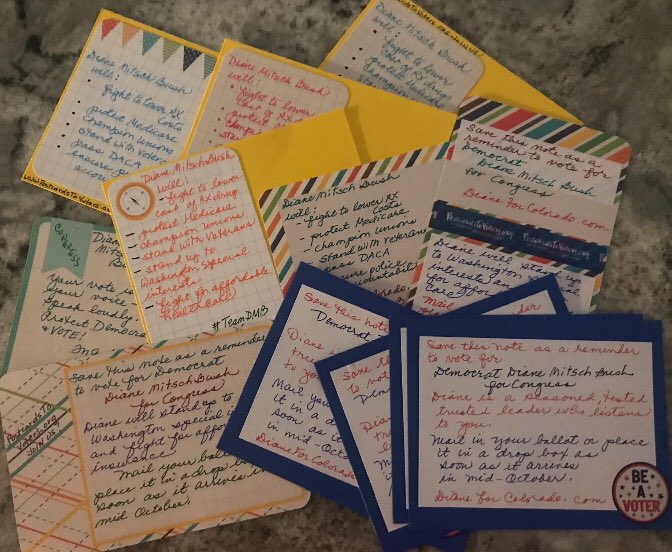 Diane Mitsch Bush
will:
fight to lower RX
Costs
protect Medicare
Champion unions
stand with Veterans
pass DACA
ensure
www.PostcardsToVoters.org
Diane Mitsch Bush
will:
fight to lower
cost of RX
protect
champ
stand
Diane Mitsch Bush
will:
fight to lower
cost of RX
protect Medicare
Champion
Diane Mitsch Bush
will:
fight to lower
cost of RX drug
protect Medicare
champion unions
stand with Veterans
stand up to
Washington Special
interests
fight for affordable
healthcare
#TeamDMB
Diane Mitsch Bush
will:
fight to lower RX
Costs
protect Medicare
champion unions
stand with Veterans
pass DACA
police
Save this note as a
reminder to vote for
Democrat
Diane Mitsch Bush
for Congress
DianeForColorado.com
PostcardsToVoters.org
Diane will stand up
to Washington special
interests an
for affor
Mail
Your vote is
your voice
Speak loudly
protect Democra
VOTE!
PostcardsTo
Voters.org
Join us
Save this note as a reminder
to vote for Democrat
Diane Mitsch Bush
for Congress
Diane will stand up to
Washington special in
and fight for affor
insurance
Mail your ballot
place it in a drop box
soon as it arrives in
mid October.
Save this note
Democrat
Diane is
trus
to you
Mail your
it in a d
soon as it
in mid-Octo
DianeForColorado
Save this note as a reminder
to vote for
Democrat Diane Mitsch Bush
for Congress
Diane is a seasoned, tested
trusted leader who listens
to you.
Mail in your ballot or place
it in a drop box as
soon as it arrives
in mid-October.
Diane for Colorado.com
BE
A
VOTER